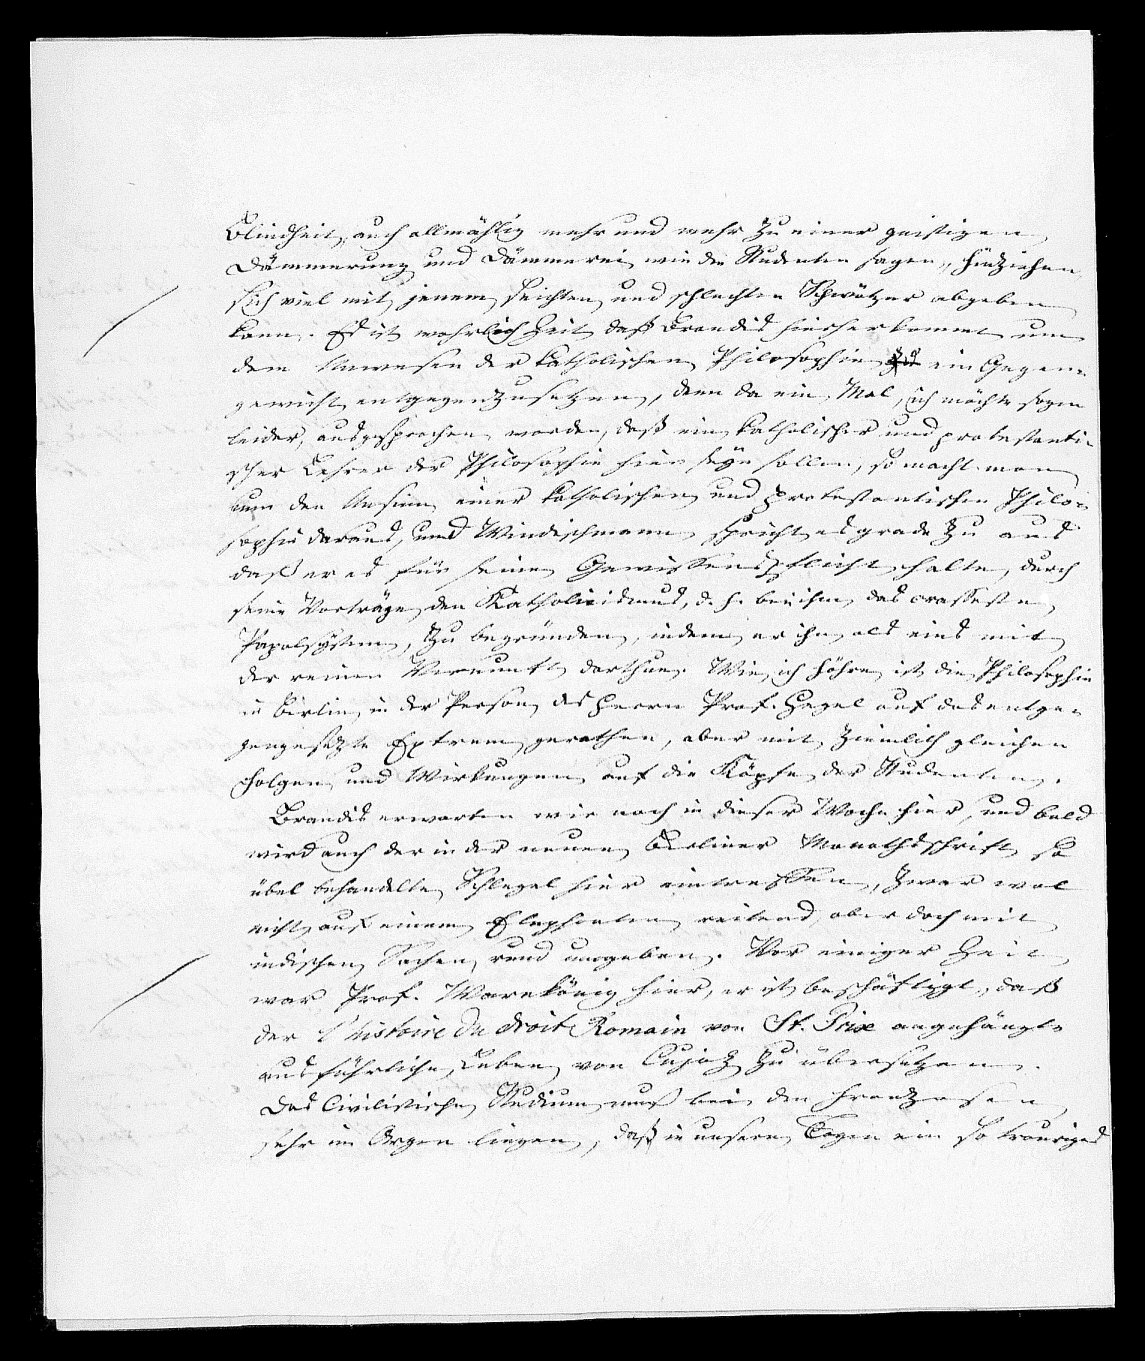 Blindheit, auch allmählig mehr und mehr zu einer geistigen
Dämmerung und Dämmerei, wie die Studenten sagen, hinziehen
sich viel mit jenem seichten und schlechten Schwätzer abgeben
kann. Es ist wahrlich Zeit, daß Brandis hierher kommt um
dem Unwesen der katholischen Philosophie ein Gegen-
gewicht entgegenzusetzen, denn da ein Mal, ich möchte sagen
leider, ausgesprochen worden, daß ein katholischer und protestanti-
scher Lehrer der Philosophie hier seyn sollen, so macht man
nun den Unsinn einer katholischen und protestantischen Philo-
sophie daraus, und Windischmann spricht es grade zu aus
daß er es für seine Gewissenspflicht halte, durch
seine Vorträge den Katholicismus, d. h. bei ihm, das crasseste
Papalsystem, zu begründen, indem er ihn als eins mit
der reinen Vernunft darthue. Wie ich höhre ist die Philosophie
in Berlin in der Person des Herrn Prof. Hegel auf das entge-
gengesetzte Extrem gerathen, aber mit ziemlich gleichen
Folgen und Wirkungen auf die Köpfe der Studenten.
Brandis erwarten wir noch in dieser Woche hier, und bald
wird auch der in der neuen Berliner Monathsschrift so
übel behandelte Schlegel hier eintreffen, zwar wol
nicht auf einem Elephanten reitend, aber doch mit
indischen Sachen rund umgeben. Vor einiger Zeit
war Prof. Warnkönig hier, er ist beschäftigt, das
der l'histoire du droit Romain von St. Prix angehängte
ausführliche Leben von Cujaz zu übersetzen.
Das Civilistische Studium muß bei den Franzosen
sehr im Argen liegen, daß in unsern Tagen ein so trauriges